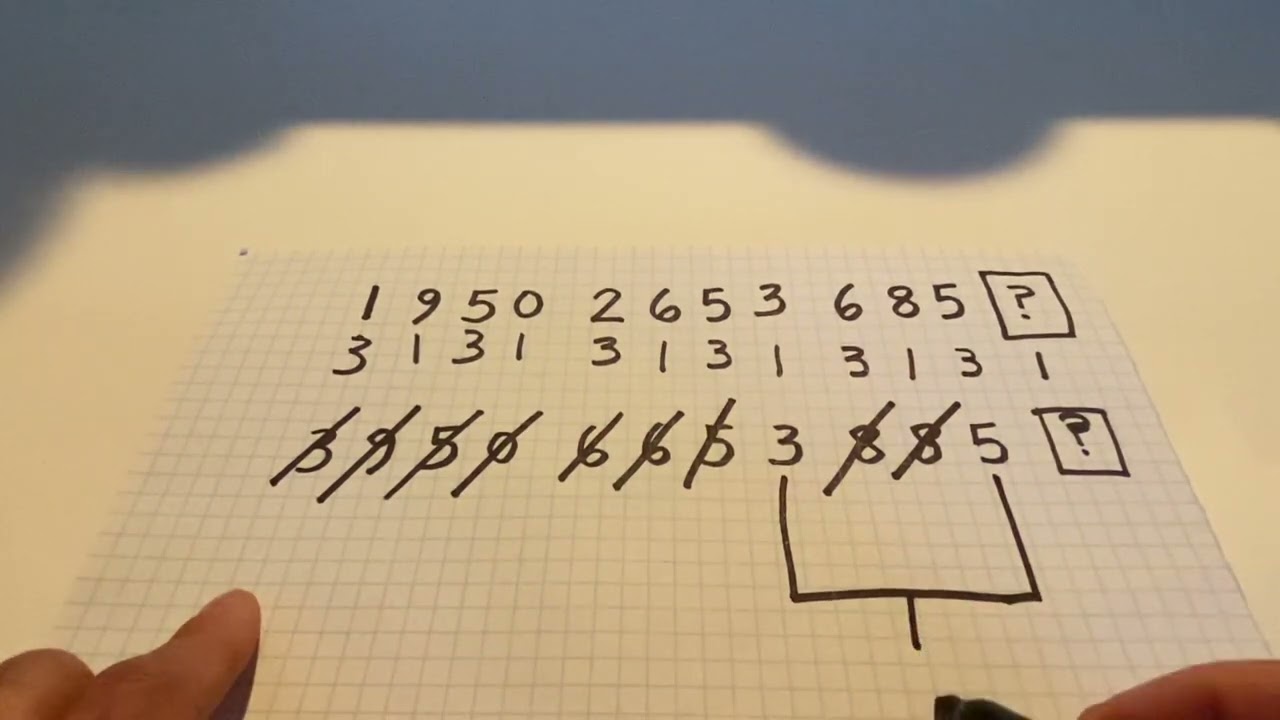 1 9 5 0 2 6 5 3 6 8 5 ?
3 1 3 1 3 1 3 1 3 1 3 1
3 9 5 0 6 6 5 3 8 8 5 ?